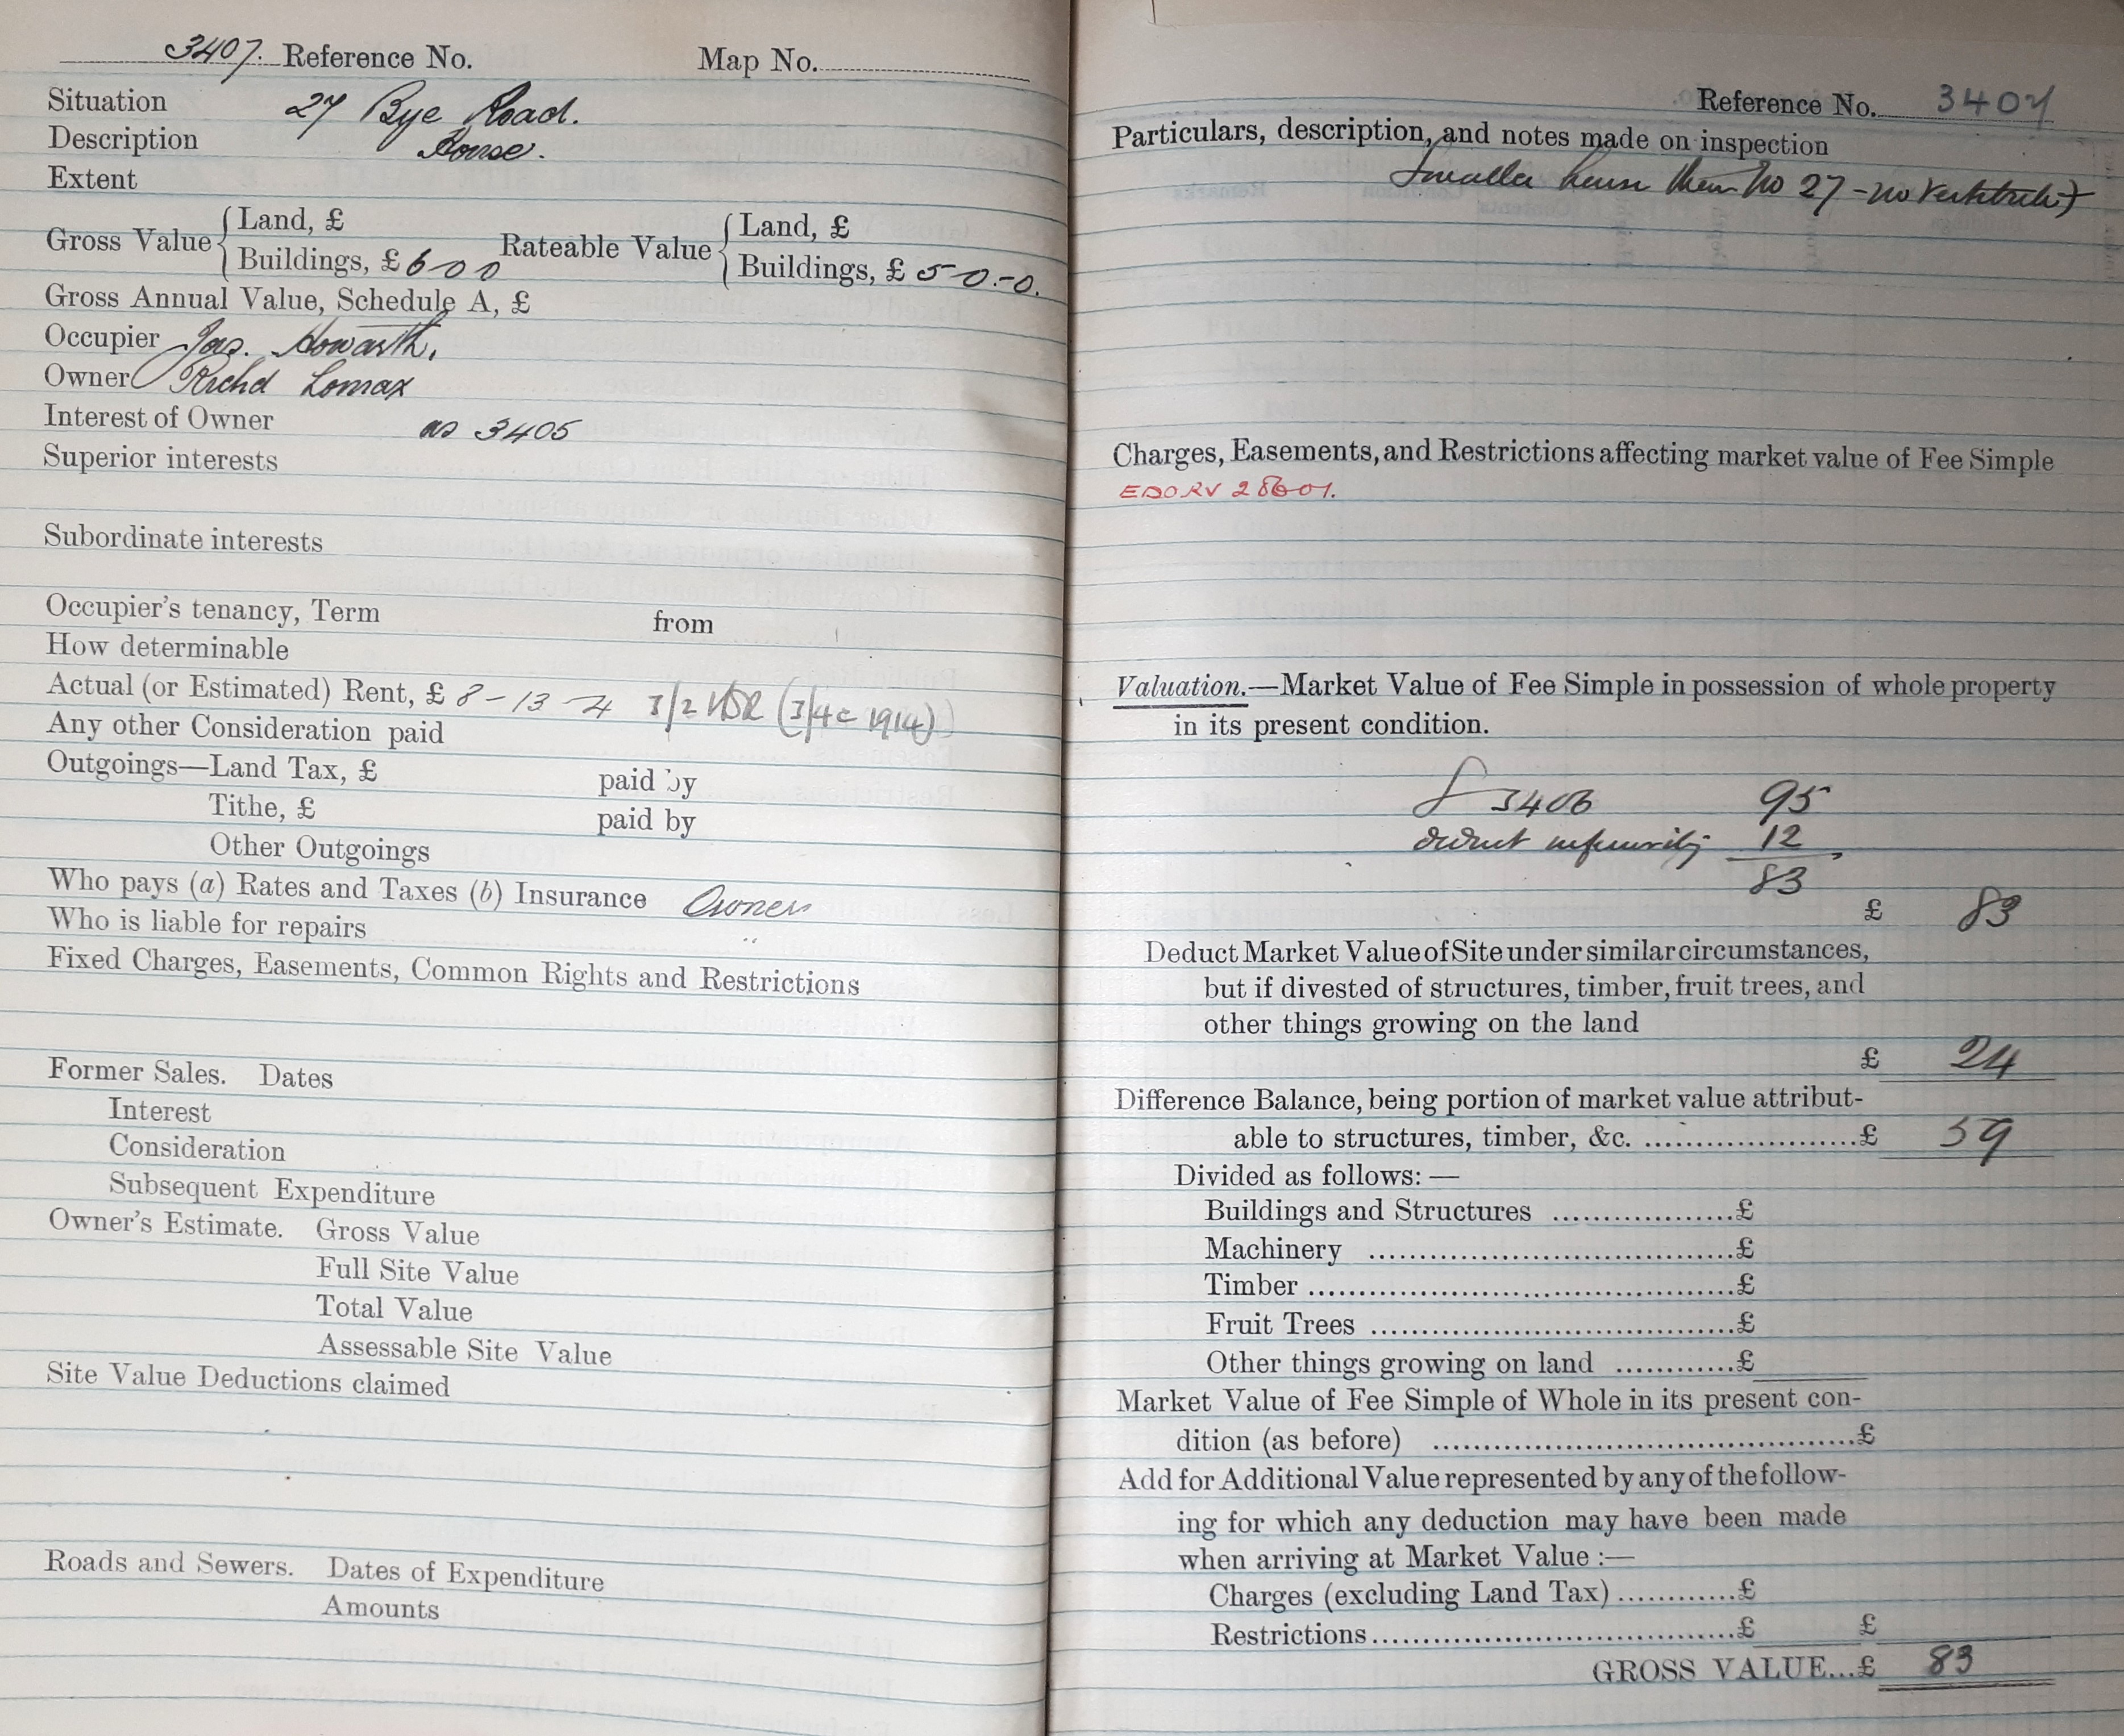 3407. Reference No. Map No.
Situation 27 Bye Road.
Description House.
Extent
Gross Value { Land, £
Buildings, £ 6-0 0 Rateable Value { Land, £
Buildings, £ 5-0.-0.
Gross Annual Value, Schedule A, £
Occupier Jas. Howarth,
Owner Richd Lomax
Interest of Owner as 3405
Superior interests
Subordinate interests
Occupier's tenancy, Term from
How determinable
Actual (or Estimated) Rent, £ 8-13-4 3/2 (3/4 1914)
Any other Consideration paid
Outgoings—Land Tax, £ paid by
Tithe, £ paid by
Other Outgoings
Who pays (a) Rates and Taxes (b) Insurance Owner
Who is liable for repairs "
Fixed Charges, Easements, Common Rights and Restrictions
Former Sales. Dates
Interest
Consideration
Subsequent Expenditure
Owner's Estimate. Gross Value
Full Site Value
Total Value
Assessable Site Value
Site Value Deductions claimed
Roads and Sewers. Dates of Expenditure
Amounts
Reference No. 3407
Particulars, description, and notes made on inspection
Smaller house than No 27 - no
Charges, Easements, and Restrictions affecting market value of Fee Simple
EDORV
Valuation.—Market Value of Fee Simple in possession of whole property
in its present condition.
3406 95
deduct 12
83
£ 83
Deduct Market Value of Site under similar circumstances,
but if divested of structures, timber, fruit trees, and
other things growing on the land
£ 24
Difference Balance, being portion of market value attribut-
able to structures, timber, &c. ....................£ 59
Divided as follows: —
Buildings and Structures ..................£
Machinery ....................................£
Timber ..........................................£
Fruit Trees ....................................£
Other things growing on land ............£
Market Value of Fee Simple of Whole in its present con-
dition (as before) ..........................................£
Add for Additional Value represented by any of the follow-
ing for which any deduction may have been made
when arriving at Market Value :—
Charges (excluding Land Tax) ............£
Restrictions....................................£ £
GROSS VALUE...£ 83